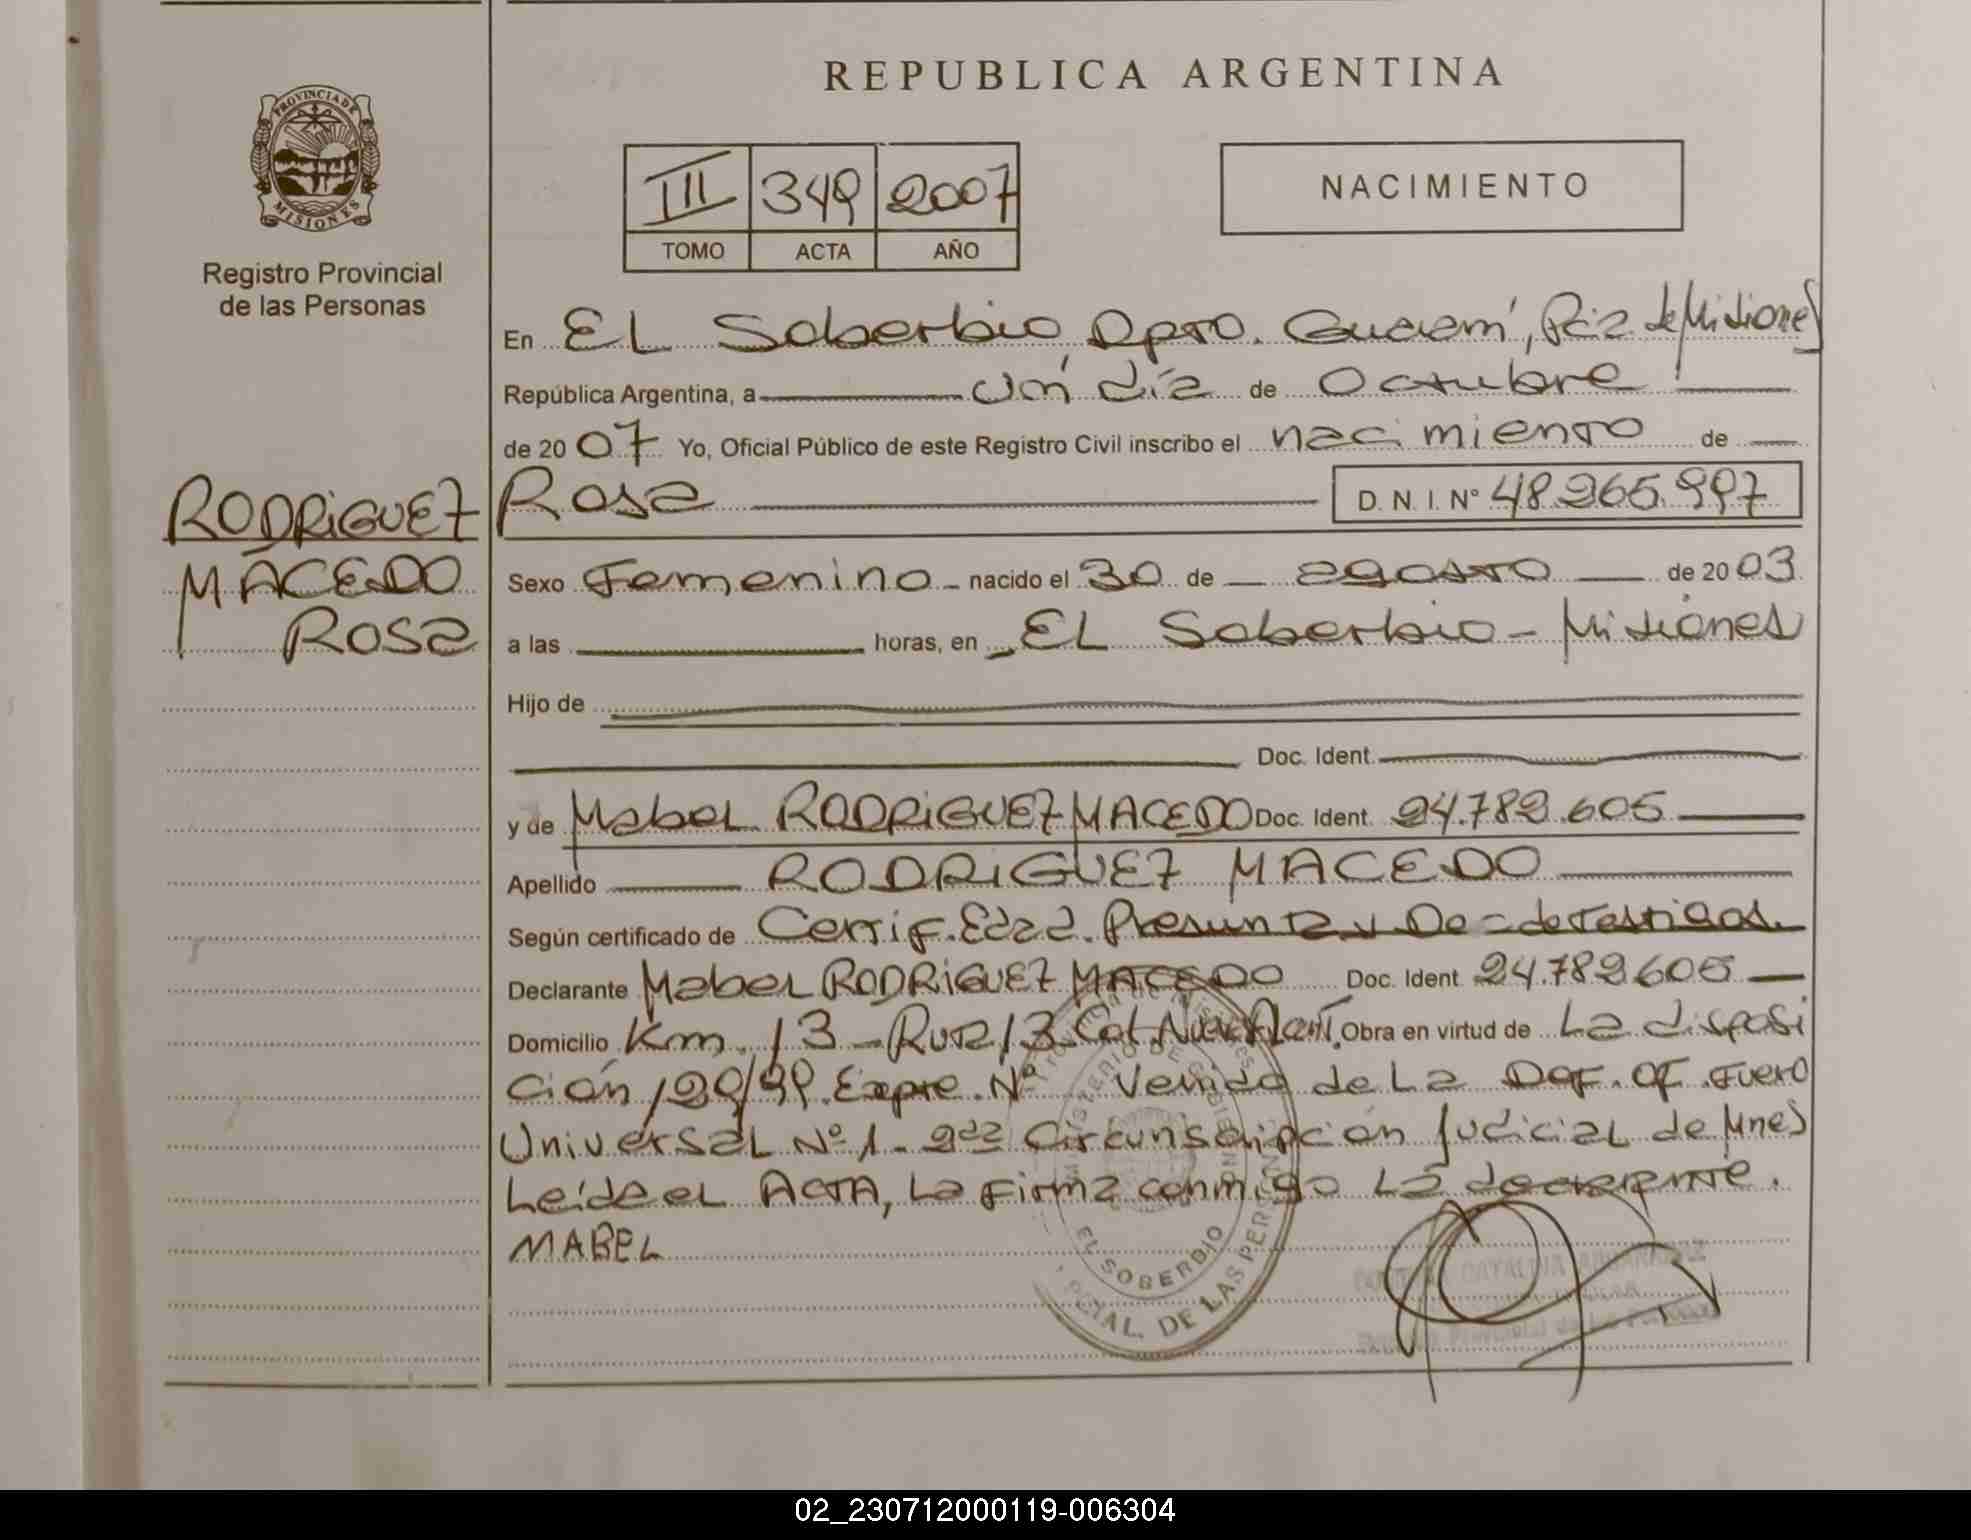 REPUBLICA ARGENTINA
PROVINCIA DE
MISIONES
Registro Provincial
de las Personas
III 349 2007
TOMO ACTA AÑO
NACIMIENTO
En EL Soberbio, Dpto. Guaraní, Pcia de Misiones
República Argentina, a un día de Octubre
de 2007 Yo, Oficial Público de este Registro Civil inscribo el nacimiento de
RODRiGUEZ
MACEDO
Rosa
Rosa D. N. I. Nº 48.265.997
Sexo Femenino - nacido el 30 de agosto de 2003
a las horas, en EL Soberbio - Misiones
Hijo de
Doc. Ident.
y de Mabel RODRiGUEZ MACEDO Doc. Ident. 24.782.605
Apellido RODRiGUEZ MACEDO
Según certificado de Certif. Edad. Presunta y De de Testigos.
Declarante Mabel RODRiGUEZ MACEDO Doc. Ident. 24.782605
Domicilio Km. 13 - Ruta 13 Col. Obra en virtud de La disposi
ción 120/99. Expte. Nº Venido de La Def. Of. Fuero
Universal Nº 1 - 2da Circunscripción Judicial de Mnes
Leída el ACTA, La firma conmigo La declarante.
MABEL
EL SOBERBIO
DE LAS PERSON
02_230712000119-006304